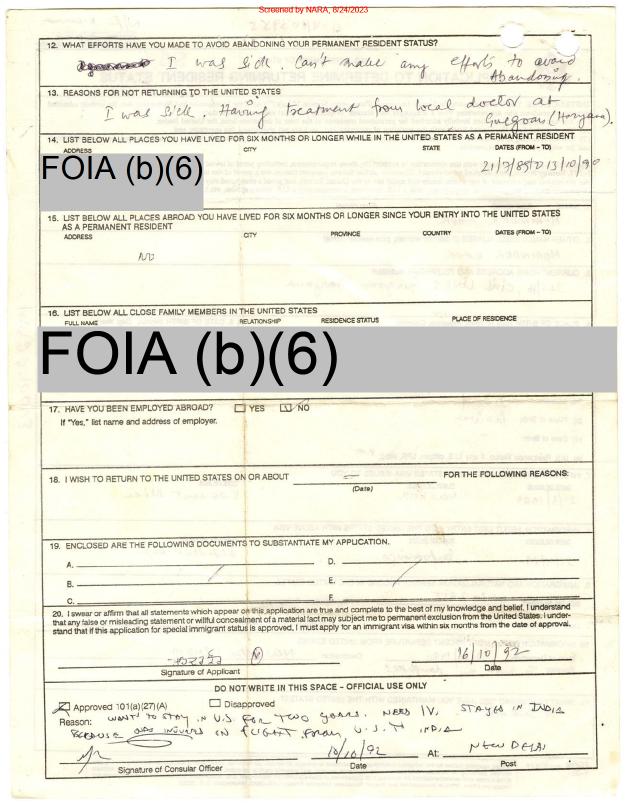 Screened by NARA, 8/24/2023
12. WHAT EFFORTS HAVE YOU MADE TO AVOID ABANDONING YOUR PERMANENT RESIDENT STATUS?
I was sick. Can't make any efforts to avoid
Abandoning.
13. REASONS FOR NOT RETURNING TO THE UNITED STATES
I was sick. Having treatment from local doctor at
Gurgoan (Haryana).
14. LIST BELOW ALL PLACES YOU HAVE LIVED FOR SIX MONTHS OR LONGER WHILE IN THE UNITED STATES AS A PERMANENT RESIDENT
ADDRESS CITY STATE DATES (FROM – TO)
FOIA (b)(6)
13/10/90
15. LIST BELOW ALL PLACES ABROAD YOU HAVE LIVED FOR SIX MONTHS OR LONGER SINCE YOUR ENTRY INTO THE UNITED STATES
AS A PERMANENT RESIDENT
ADDRESS CITY PROVINCE COUNTRY DATES (FROM – TO)
NO
16. LIST BELOW ALL CLOSE FAMILY MEMBERS IN THE UNITED STATES
FULL NAME RELATIONSHIP RESIDENCE STATUS PLACE OF RESIDENCE
FOIA (b)(6)
17. HAVE YOU BEEN EMPLOYED ABROAD? YES NO
If "Yes," list name and address of employer.
18. I WISH TO RETURN TO THE UNITED STATES ON OR ABOUT FOR THE FOLLOWING REASONS:
(Date)
19. ENCLOSED ARE THE FOLLOWING DOCUMENTS TO SUBSTANTIATE MY APPLICATION.
A. D.
B. E.
C. F.
20. I swear or affirm that all statements which appear on this application are true and complete to the best of my knowledge and belief. I understand
that any false or misleading statement or willful concealment of a material fact may subject me to permanent exclusion from the United States. I under-
stand that if this application for special immigrant status is approved, I must apply for an immigrant visa within six months from the date of approval.
16/10/92
Signature of Applicant Date
DO NOT WRITE IN THIS SPACE – OFFICIAL USE ONLY
Approved 101(a)(27)(A) Disapproved
Reason: WANT TO STAY IN U.S. FOR TWO YEARS. NEED IV, STAYED IN INDIA
BECAUSE WAS INJURED ON FLIGHT FROM U.S. TO INDIA
10/10/92 At: NEW DELHI
Signature of Consular Officer Date Post